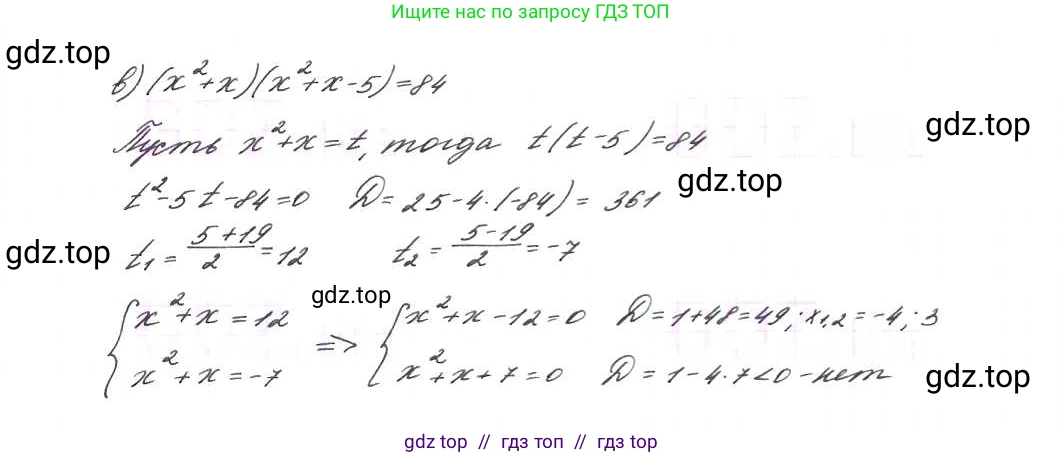 Ищите нас по запросу ГДЗ ТОП
gdz.top
в) (x²+x)(x²+x-5)=84
gdz.top
Пусть x²+x=t, тогда t(t-5)=84
gdz.top
t²-5t-84=0 D=25-4·(-84)=361
gdz.top
t₁=(5+19)/2=12 t₂=(5-19)/2=-7
gdz.top
{x²+x=12 => {x²+x-12=0 D=1+48=49; x₁,₂=-4; 3
{x²+x=-7 {x²+x+7=0 D=1-4·7<0-нет
gdz.top
gdz.top // гдз топ // гдз top